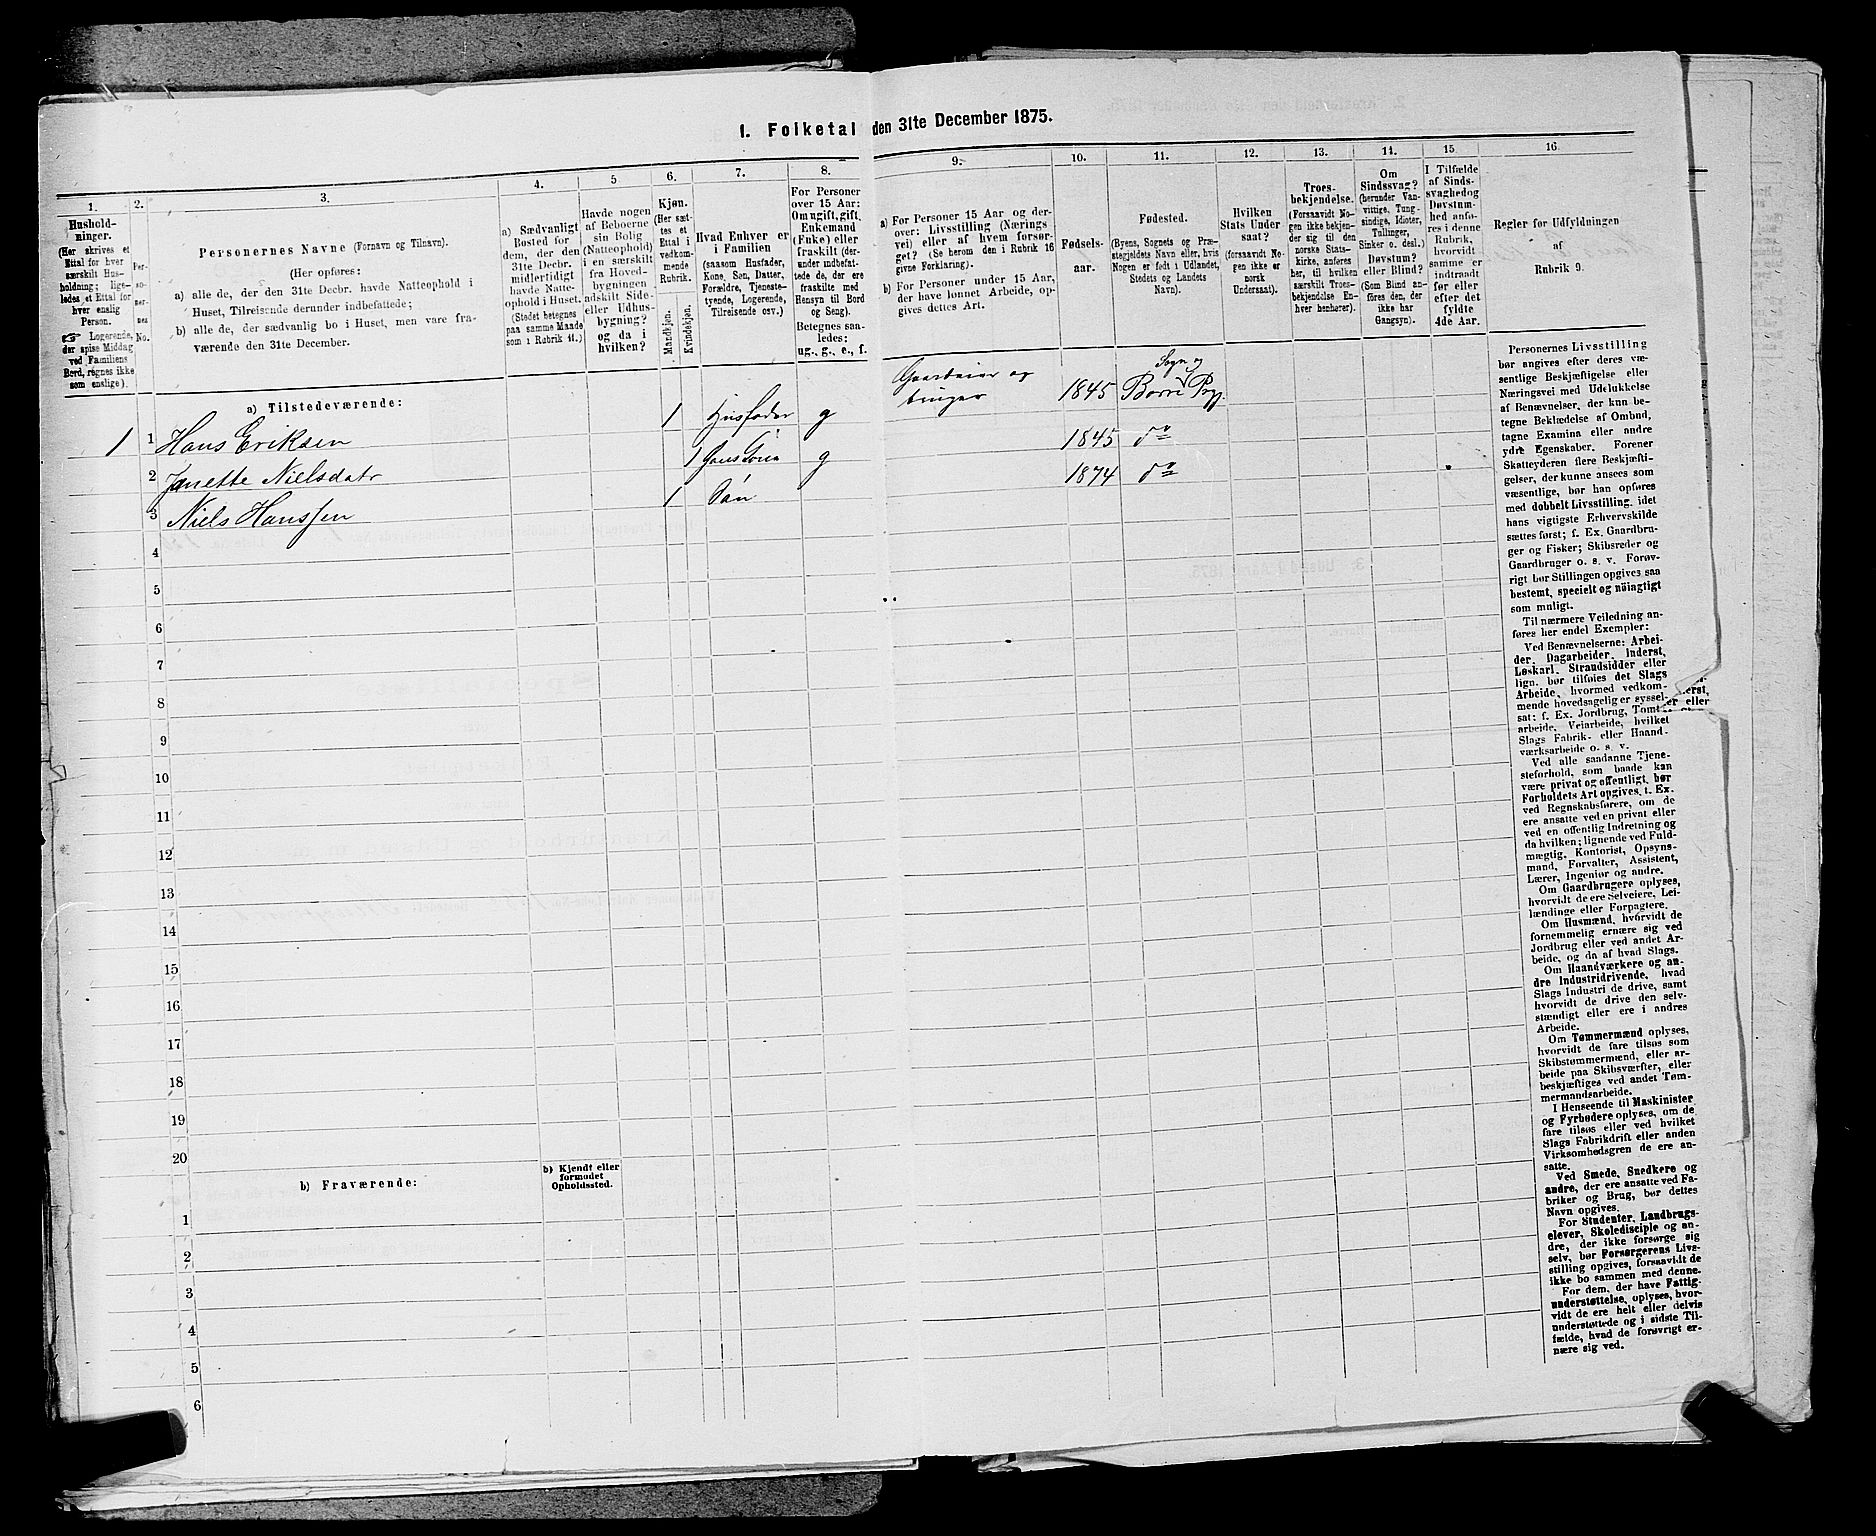 1. Folketal den 31te December 1875.
1.
2.
3.
4.
5
6.
7.
8.
9.
10.
11.
12.
13.
14.
15
16
Hushold-
ninger.
(Her skrives et
Ettal for hver
særskilt Hus-
holdning; lige-
ledes et Ettal for
hver enslig
Person.
☞ Logerende,
der spise Middag
ved Familiens
Bord, regnes ikke
som enslige).
Per-
so-
ner-
nes
No.
Personernes Navne (Fornavn og Tilnavn).
(Her opføres:
a) alle de, der den 31te Decbr. havde Natteophold i
Huset, Tilreisende derunder indbefattede;
b) alle de, der sædvanlig bo i Huset, men vare fra-
værende den 31te December.
a) Sædvanligt
Bosted for
dem, der den
31te Decbr.
midlertidigt
havde Natte-
ophold i Huset.
(Stedet betegnes
paa samme Maade
som i Rubrik 11.)
Havde nogen
af Beboerne
sin Bolig
(Natteophold)
i en særskilt
fra Hoved-
bygningen
adskilt Side-
eller Udhus-
bygning?
og da i
hvilken?
Kjøn.
(Her sæt-
tes et
Ettal i
vedkom-
mende
Rubrik.
Mandkjøn.
Kvindekjøn.
Hvad Enhver er
i Familien
(saasom Husfader,
Kone, Søn, Datter,
Forældre, Tjeneste-
tyende, Logerende,
Tilreisende osv.)
For Personer
over 15 Aar:
Om ugift, gift,
Enkemand
(Enke) eller
fraskilt (der-
under indbefat-
tede de, der ere
fraskilte med
Hensyn til Bord
og Seng).
Betegnes saa-
ledes:
ug., g., e., f.
a) For Personer 15 Aar og der-
over: Livsstilling (Nærings-
vei) eller af hvem forsør-
get? (Se herom den i Rubrik 16
givne Forklaring).
b) For Personer under 15 Aar,
der have lønnet Arbeide, op-
gives dettes Art.
Fødsels-
aar.
Fødested.
(Byens, Sognets og Præ-
stegjeldets Navn eller, hvis
Nogen er født i Udlandet,
Stedets og Landets
Navn).
Hvilken
Stats Under
saat?
(forsaavidt No-
gen ikke er
norsk
Undersaat).
Troes-
bekjendelse.
(Forsaavidt No-
gen ikke bekjen-
der sig til den
norske Stats-
kirke, anføres
her, til hvilken
særskilt Troes-
bekjendelse En-
hver henhører).
Om
Sindssvag?
(herunder Van-
vittige, Tung-
sindige, Idioter,
Tullinger,
Sinker o. desl.)
Døvstum?
eller Blind?
(Som Blind an-
føres den, der
ikke har
Gangsyn).
I Tilfælde
af Sinds-
svaghed og
Døvstum-
hed anfø-
res i denne
Rubrik,
hvorvidt
samme er
indtraadt
før eller
efter det
fyldte
4de Aar.
Regler for Udfyldningen
af
Rubrik 9.
a) Tilstedeværende:
1 1 Hans Eriksen 1 Husfader g Gaardeier og bruger 1845 Borre Sogn og Pgj.
2 Janette Nielsdatr 1 hans Kone g 1845 do
3 Niels Hanssen 1 Søn 1874 do
4
5
6
7
8
9
10
11
12
13
14
15
16
17
18
19
20
b) Fraværende:
b) Kjendt eller
formodet
Opholdssted.
1
2
3
4
5
6
Personernes Livsstilling
bør angives efter deres væ-
sentlige Beskjæftigelse eller
Næringsvei med Udelukkelse
af Benævnelser, der kun be-
tegne Beklædelse af Ombud,
tagne Examina eller andre
ydre Egenskaber. Forener
Skatteyderen flere Beskjæfti-
gelser, der kunne ansees som
væsentlige, bør han opføres
med dobbelt Livsstilling, idet
hans vigtigste Erhvervskilde
sættes først; f. Ex. Gaardbru-
ger og Fisker; Skibsreder og
Gaardbruger o. s. v. Forøv-
rigt bør Stillingen opgives saa
bestemt, specielt og nøiagtigt
som muligt.
Til nærmere Veiledning an-
føres her endel Exempler:
Ved Benævnelserne: Arbei-
der, Dagarbeider, Inderst,
Løskarl, Strandsidder eller
lign. bør tilføies det Slags
Arbeide, hvormed vedkom-
mende hovedsagelig er syssel-
sat: f. Ex. Jordbrug, Tomt-
arbeide, Veiarbeide, hvilket
Slags Fabrik- eller Haand-
værksarbeide o. s. v.
Ved alle saadanne Tjene-
steforhold, som baade kan
være privat og offentligt, bør
Forholdets Art opgives, t. Ex.
ved Regnskabsførere, om de
ere ansatte ved en privat eller
ved en offentlig Indretning og
da hvilken; lignende ved Fuld-
mægtig, Kontorist, Opsyns-
mand, Forvalter, Assistent,
Lærer, Ingeniør og andre.
Om Gaardbrugere oplyses,
hvorvidt de ere Selveiere, Lei-
lændinge eller Forpagtere.
Om Husmænd, hvorvidt de
fornemmelig ernære sig ved
Jordbrug eller ved andet Ar-
beide, og da af hvad Slags.
Om Haandværkere og an-
dre Industridrivende, hvad
Slags Industri de drive, samt
hvorvidt de drive den selv-
stændigt eller ere i andres
Arbeide.
Om Tømmermænd oplyses,
hvorvidt de fare tilsøs som
Skibstømmermænd, eller ar-
beide paa Skibsværfter, eller
beskjæftiges ved andet Tøm-
mermandsarbeide.
I Henseende til Maskinister
og Fyrbødere oplyses, om de
fare tilsøs eller ved hvilket
Slags Fabrikdrift eller anden
Virksomhedsgren de ere an-
satte.
Ved Smede, Snedkere og
andre, der ere ansatte ved Fa-
briker og Brug, bør dettes
Navn opgives.
For Studenter, Landbrugs-
elever, Skoledisciple og an-
dre, der ikke forsørge sig
selv, bør Forsørgerens Livs-
stilling opgives, forsaavidt de
ikke bo sammen med denne.
For dem, der have Fattig-
understøttelse, oplyses, hvor-
vidt de ere helt eller delvis
understøttede og i sidste Til-
fælde, hvad de forøvrigt er-
nære sig ved.